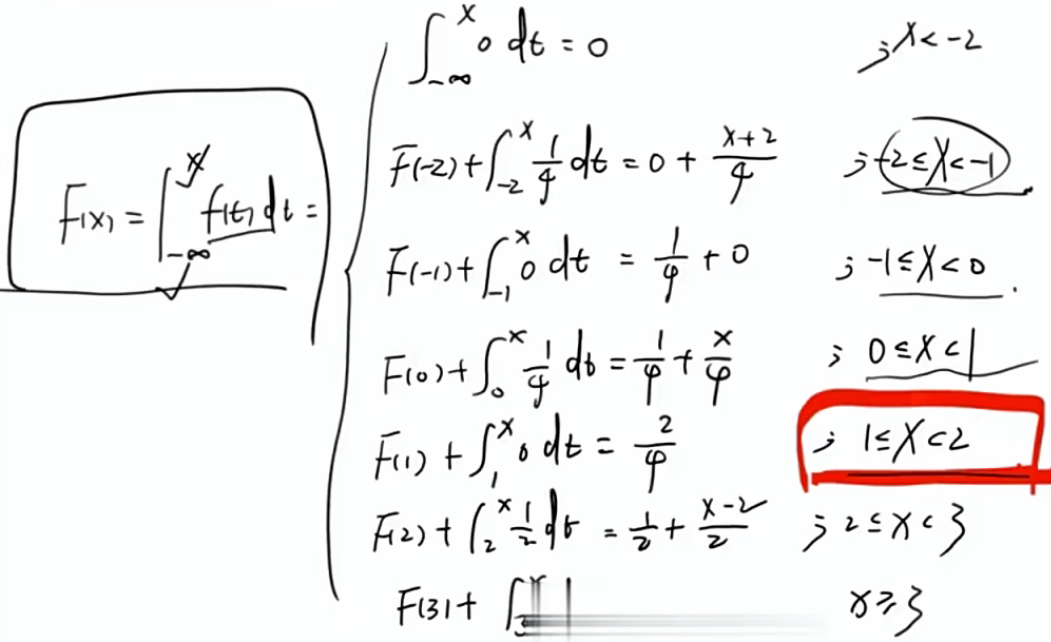 F(x) = ∫_{-∞}^{x} f(t) dt =
∫_{-∞}^{x} 0 dt = 0 ; x < -2
F(-2) + ∫_{-2}^{x} 1/4 dt = 0 + (x+2)/4 ; -2 ≤ x < -1
F(-1) + ∫_{-1}^{x} 0 dt = 1/4 + 0 ; -1 ≤ x < 0
F(0) + ∫_{0}^{x} 1/4 dt = 1/4 + x/4 ; 0 ≤ x < 1
F(1) + ∫_{1}^{x} 0 dt = 2/4 ; 1 ≤ x < 2
F(2) + ∫_{2}^{x} 1/2 dt = 1/2 + (x-2)/2 ; 2 ≤ x < 3
F(3) + ∫_{3} x ≥ 3